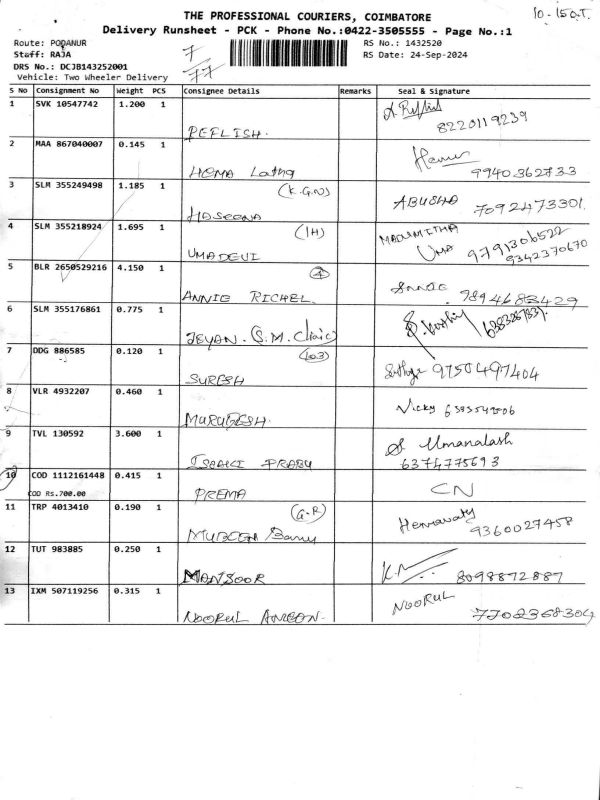 THE PROFESSIONAL COURIERS, COIMBATORE
10-15 O.T.
Delivery Runsheet - PCK - Phone No.:0422-3505555 - Page No.:1
Route: PODANUR
RS No.: 1432520
Staff: RAJA
RS Date: 24-Sep-2024
DRS No.: DCJB143252001
Vehicle: Two Wheeler Delivery
7
77
S No Consignment No Weight PCS Consignee Details Remarks Seal & Signature
1 SVK 10547742 1.200 1
REFLISH. 8220119239
2 MAA 867040007 0.145 1
HEMA Latha 9940362733
3 SLM 355249498 1.185 1 (K.G.N)
HASEENA ABUSHA 7092473301
4 SLM 355218924 1.695 1 (1H) MADUMITHA
UMADEVI UMA 9791306522
9342370670
5 BLR 2650529216 4.150 1
ANNIE RICHEL 9894683429
6 SLM 355176861 0.775 1
JEYAN. (S.M. Clinic)
7 DDG 886585 0.120 1 (103)
SURESH 9750497404
8 VLR 4932207 0.460 1
MURUGESH. Vicky
9 TVL 130592 3.600 1
PRABU 6374775693
10 COD 1112161448 0.415 1 CN
COD Rs.700.00 PREMA
11 TRP 4013410 0.190 1 (G.R)
Hemavaty 9360027458
12 TUT 983885 0.250 1
MANSOOR 8098872887
13 IXM 507119256 0.315 1
NOORUL NOORUL 7702368304